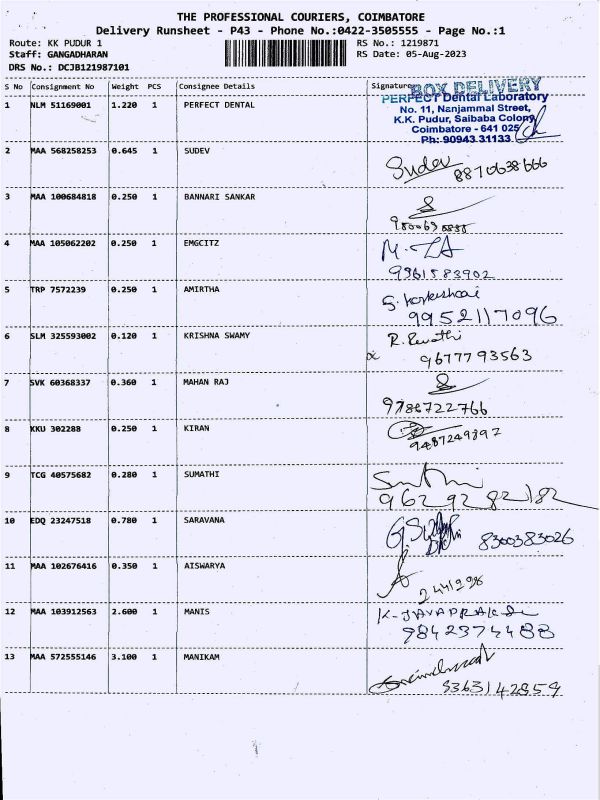 THE PROFESSIONAL COURIERS, COIMBATORE
Delivery Runsheet - P43 - Phone No.:0422-3505555 - Page No.:1
Route: KK PUDUR 1 RS No.: 1219871
Staff: GANGADHARAN RS Date: 05-Aug-2023
DRS No.: DCJB121987101
S No Consignment No Weight PCS Consignee Details Signature
BOX DELIVERY
1 NLM 51169001 1.220 1 PERFECT DENTAL
PERFECT Dental Laboratory
No. 11, Nanjammal Street,
K.K. Pudur, Saibaba Colony
Coimbatore - 641 025
Ph: 90943 31133
2 MAA 568258253 0.645 1 SUDEV
Sudev 8870638666
3 MAA 100684818 0.250 1 BANNARI SANKAR
4 MAA 105062202 0.250 1 EMGCITZ
9961583902
5 TRP 7572239 0.250 1 AMIRTHA
9952117096
6 SLM 325593002 0.120 1 KRISHNA SWAMY
R. Revathi
9677793563
7 SVK 60368337 0.360 1 MAHAN RAJ
9786722766
8 KKU 302288 0.250 1 KIRAN
9487249892
9 TCG 40575682 0.280 1 SUMATHI
9629282182
10 EDQ 23247518 0.780 1 SARAVANA
8300383026
11 MAA 102676416 0.350 1 AISWARYA
244 1296
12 MAA 103912563 2.600 1 MANIS
9842374488
13 MAA 572555146 3.100 1 MANIKAM
9363142859